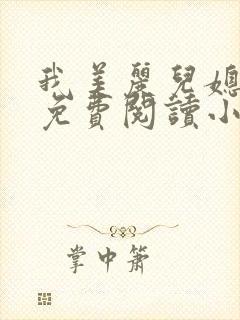 我美麗兒媳
免費閱讀小
掌中簫